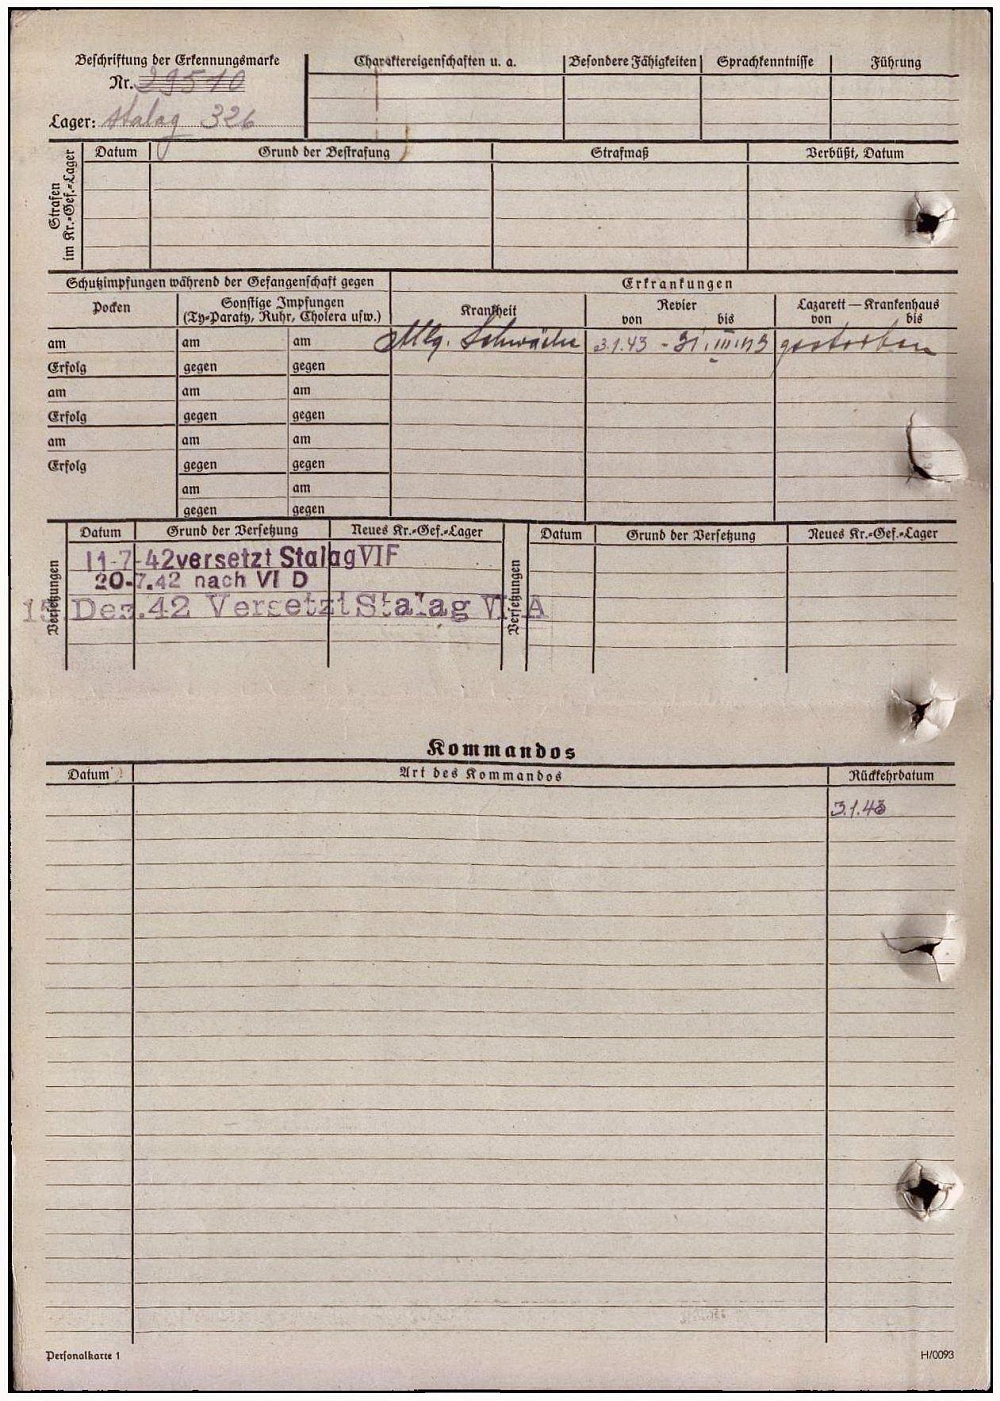 Beschriftung der Erkennungsmarke
Nr. 29510
Lager: Stalag 326
Charaktereigenschaften u. a. Besondere Fähigkeiten Sprachkenntnisse Führung
Strafen im Kr.-Gef.-Lager
Datum Grund der Bestrafung Strafmaß Verbüßt, Datum
Schutzimpfungen während der Gefangenschaft gegen Erkrankungen
Pocken Sonstige Impfungen (Ty-Paraty, Ruhr, Cholera usw.) Krankheit Revier von bis Lazarett — Krankenhaus von bis
am am am Allg. Schwäche 3.1.43 - 31.III.43 gestorben
Erfolg gegen gegen
am am am
Erfolg gegen gegen
am am am
Erfolg gegen gegen
am am
gegen gegen
Versetzungen
Datum Grund der Versetzung Neues Kr.-Gef.-Lager
11-7-42 versetzt Stalag VI F
20-7.42 nach VI D
15. Dez. 42 Versetzt Stalag VI A
Versetzungen
Datum Grund der Versetzung Neues Kr.-Gef.-Lager
Kommandos
Datum Art des Kommandos Rückkehrdatum
3.1.43
Personalkarte 1 H/0093